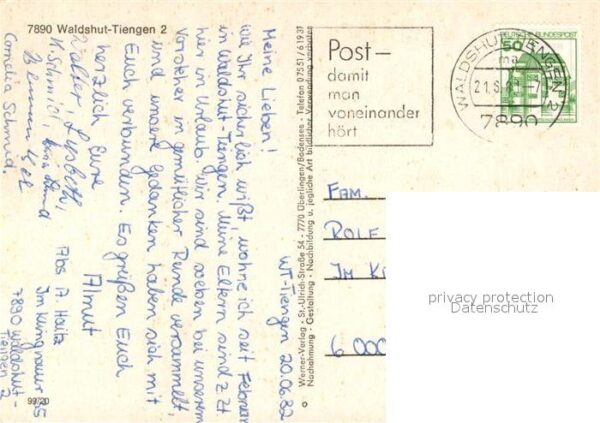 7890 Waldshut-Tiengen 2
WT-Tiengen 20.06.82
Meine Lieben!
Wie Ihr sicherlich wißt, wohne ich seit Februar
in Waldshut-Tiengen. Meine Eltern sind z.Zt.
hier in Urlaub. Wir sind soeben bei unserem
Vorsteher in gemütlicher Runde versammelt,
und unsere Gedanken haben sich mit
Euch verbunden. Es grüßen Euch
herzlich Eure
Walter, Lisbeth,
K. Schmid,
Cornelia Schmid.
7890 Waldshut-
Tiengen 2
99/20
Werner-Verlag - St.-Ulrich-Straße 54 - 7770 Überlingen/Bodensee - Telefon 07551/61931
Nachahmung - Gestaltung - Nachbildung u. jegliche Art bildlicher Verwendung verboten
Post –
damit
man
voneinander
hört
DEUTSCHE BUNDESPOST
50
WALDSHUT-TIENGEN 2
ma
7890
FAM.
ROLF
IM
6 000
privacy protection
Datenschutz